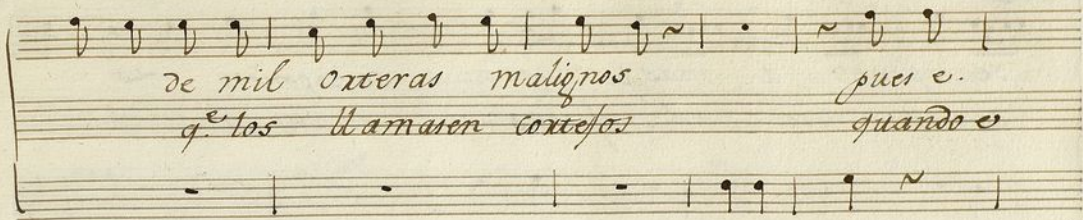 de mil orteras malignos pues e.
q.e los llamasen cortejos quando e